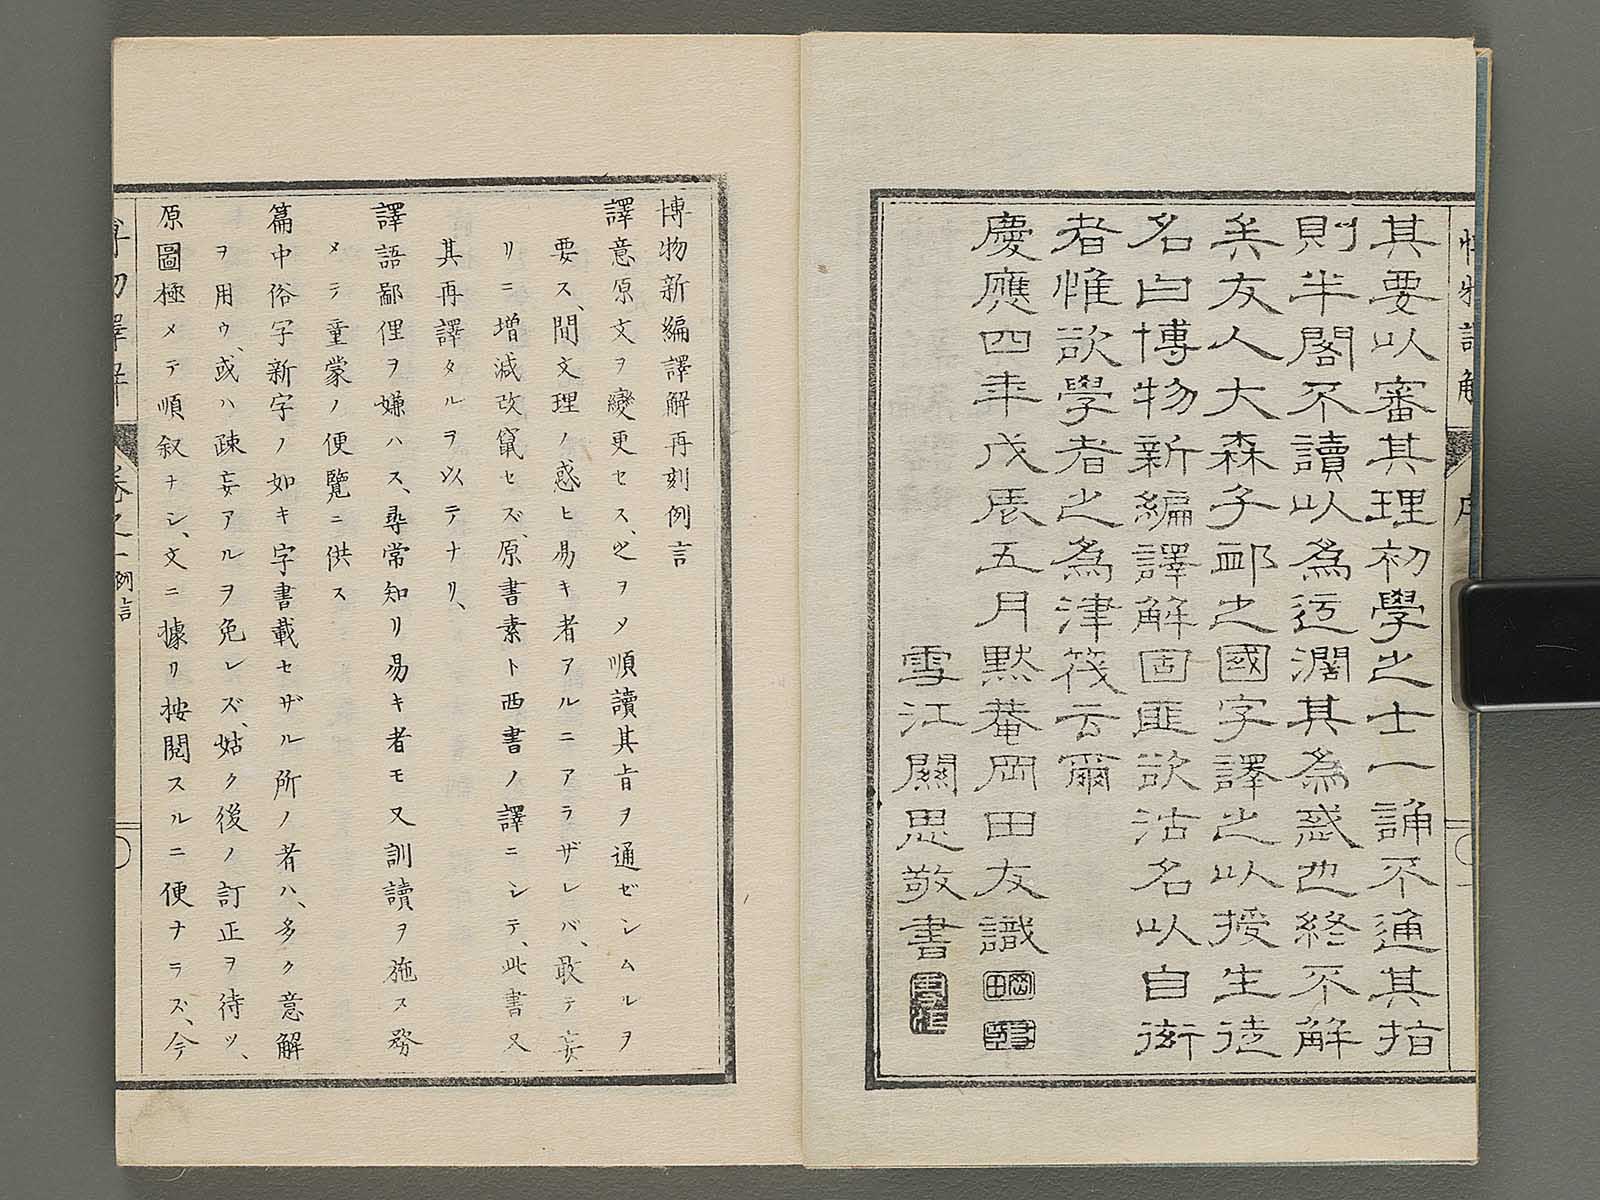 其要以審其理初學之士一誦不通其指
則半閣不讀以為迂濶其為惑也終不解
矣友人大森子郵之國字譯之以授生徒
名曰博物新編譯解固匪欲沽名以自衒
者惟欲學者之為津筏云爾
慶應四年戊辰五月默菴岡田友識
雪江關思敬書
博物新編譯解再刻例言
譯意原文ヲ變更セス、必ヲメ順讀其旨ヲ通ゼシムルヲ
要ス、間文理ノ惑ヒ易キ者アルニアラザレバ、敢テ妄
リニ增減改竄セズ、原書素ト西書ノ譯ニシテ、此書又
其再譯タルヲ以テナリ、
譯語鄙俚ヲ嫌ハス、尋常知リ易キ者モ又訓讀ヲ施ス務
メテ童蒙ノ便覽ニ供ス
篇中俗字新字ノ如キ字書載セザル所ノ者ハ、多ク意解
ヲ用ウ、或ハ疎妄アルヲ免レズ、姑ク後ノ訂正ヲ待ツ、
原圖極メテ順叙ナシ、文ニ據リ按閱スルニ便ナラズ、今
卷之一 例言